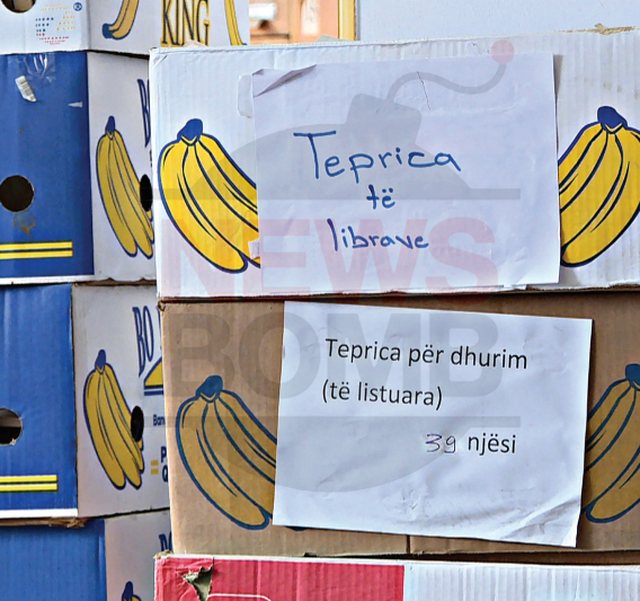 KING
Teprica
të
librave
NEWS
BOMB
Teprica për dhurim
(të listuara)
39 njësi
BO